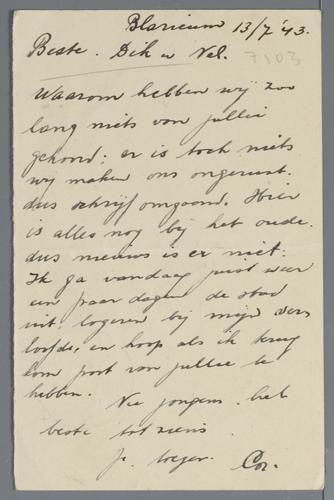 Blaricum 13/7 '43.
7103
Beste. Dik en Nel.
Waarom hebben wij zoo
lang niets van jullie
gehoord: er is toch niets
wij maken ons ongerust.
dus schrijf omgaand. Hier
is alles nog bij het oude.
dus nieuws is er niet.
Ik ga vandaag juist weer
een paar dagen de stad
uit, logeren bij mijn vers
loofde, en hoop als ik terug
kom post van jullie te
hebben.
Nu jongens het
beste tot ziens
Je Cor.